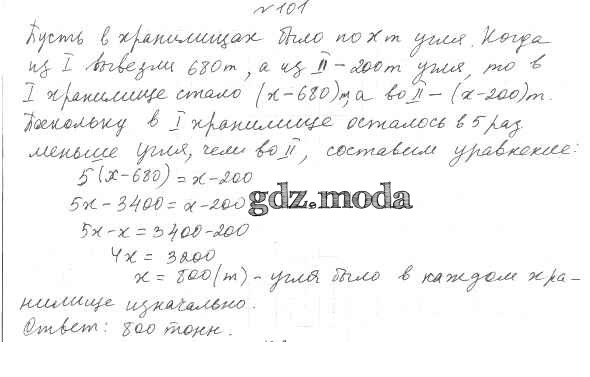 №101
Пусть в хранилищах было по х т угля. Когда
из I вывезли 680т, а из II – 200т угля, то в
I хранилище стало (х-680)т, а во II – (х-200)т.
Поскольку в I хранилище осталось в 5 раз
меньше угля, чем во II, составим уравнение:
5(х-680) = х-200
5х-3400 = х-200
gdz.moda
5х-х = 3400-200
4х = 3200
х = 800(т) – угля было в каждом хра-
нилище изначально.
Ответ: 800 тонн.